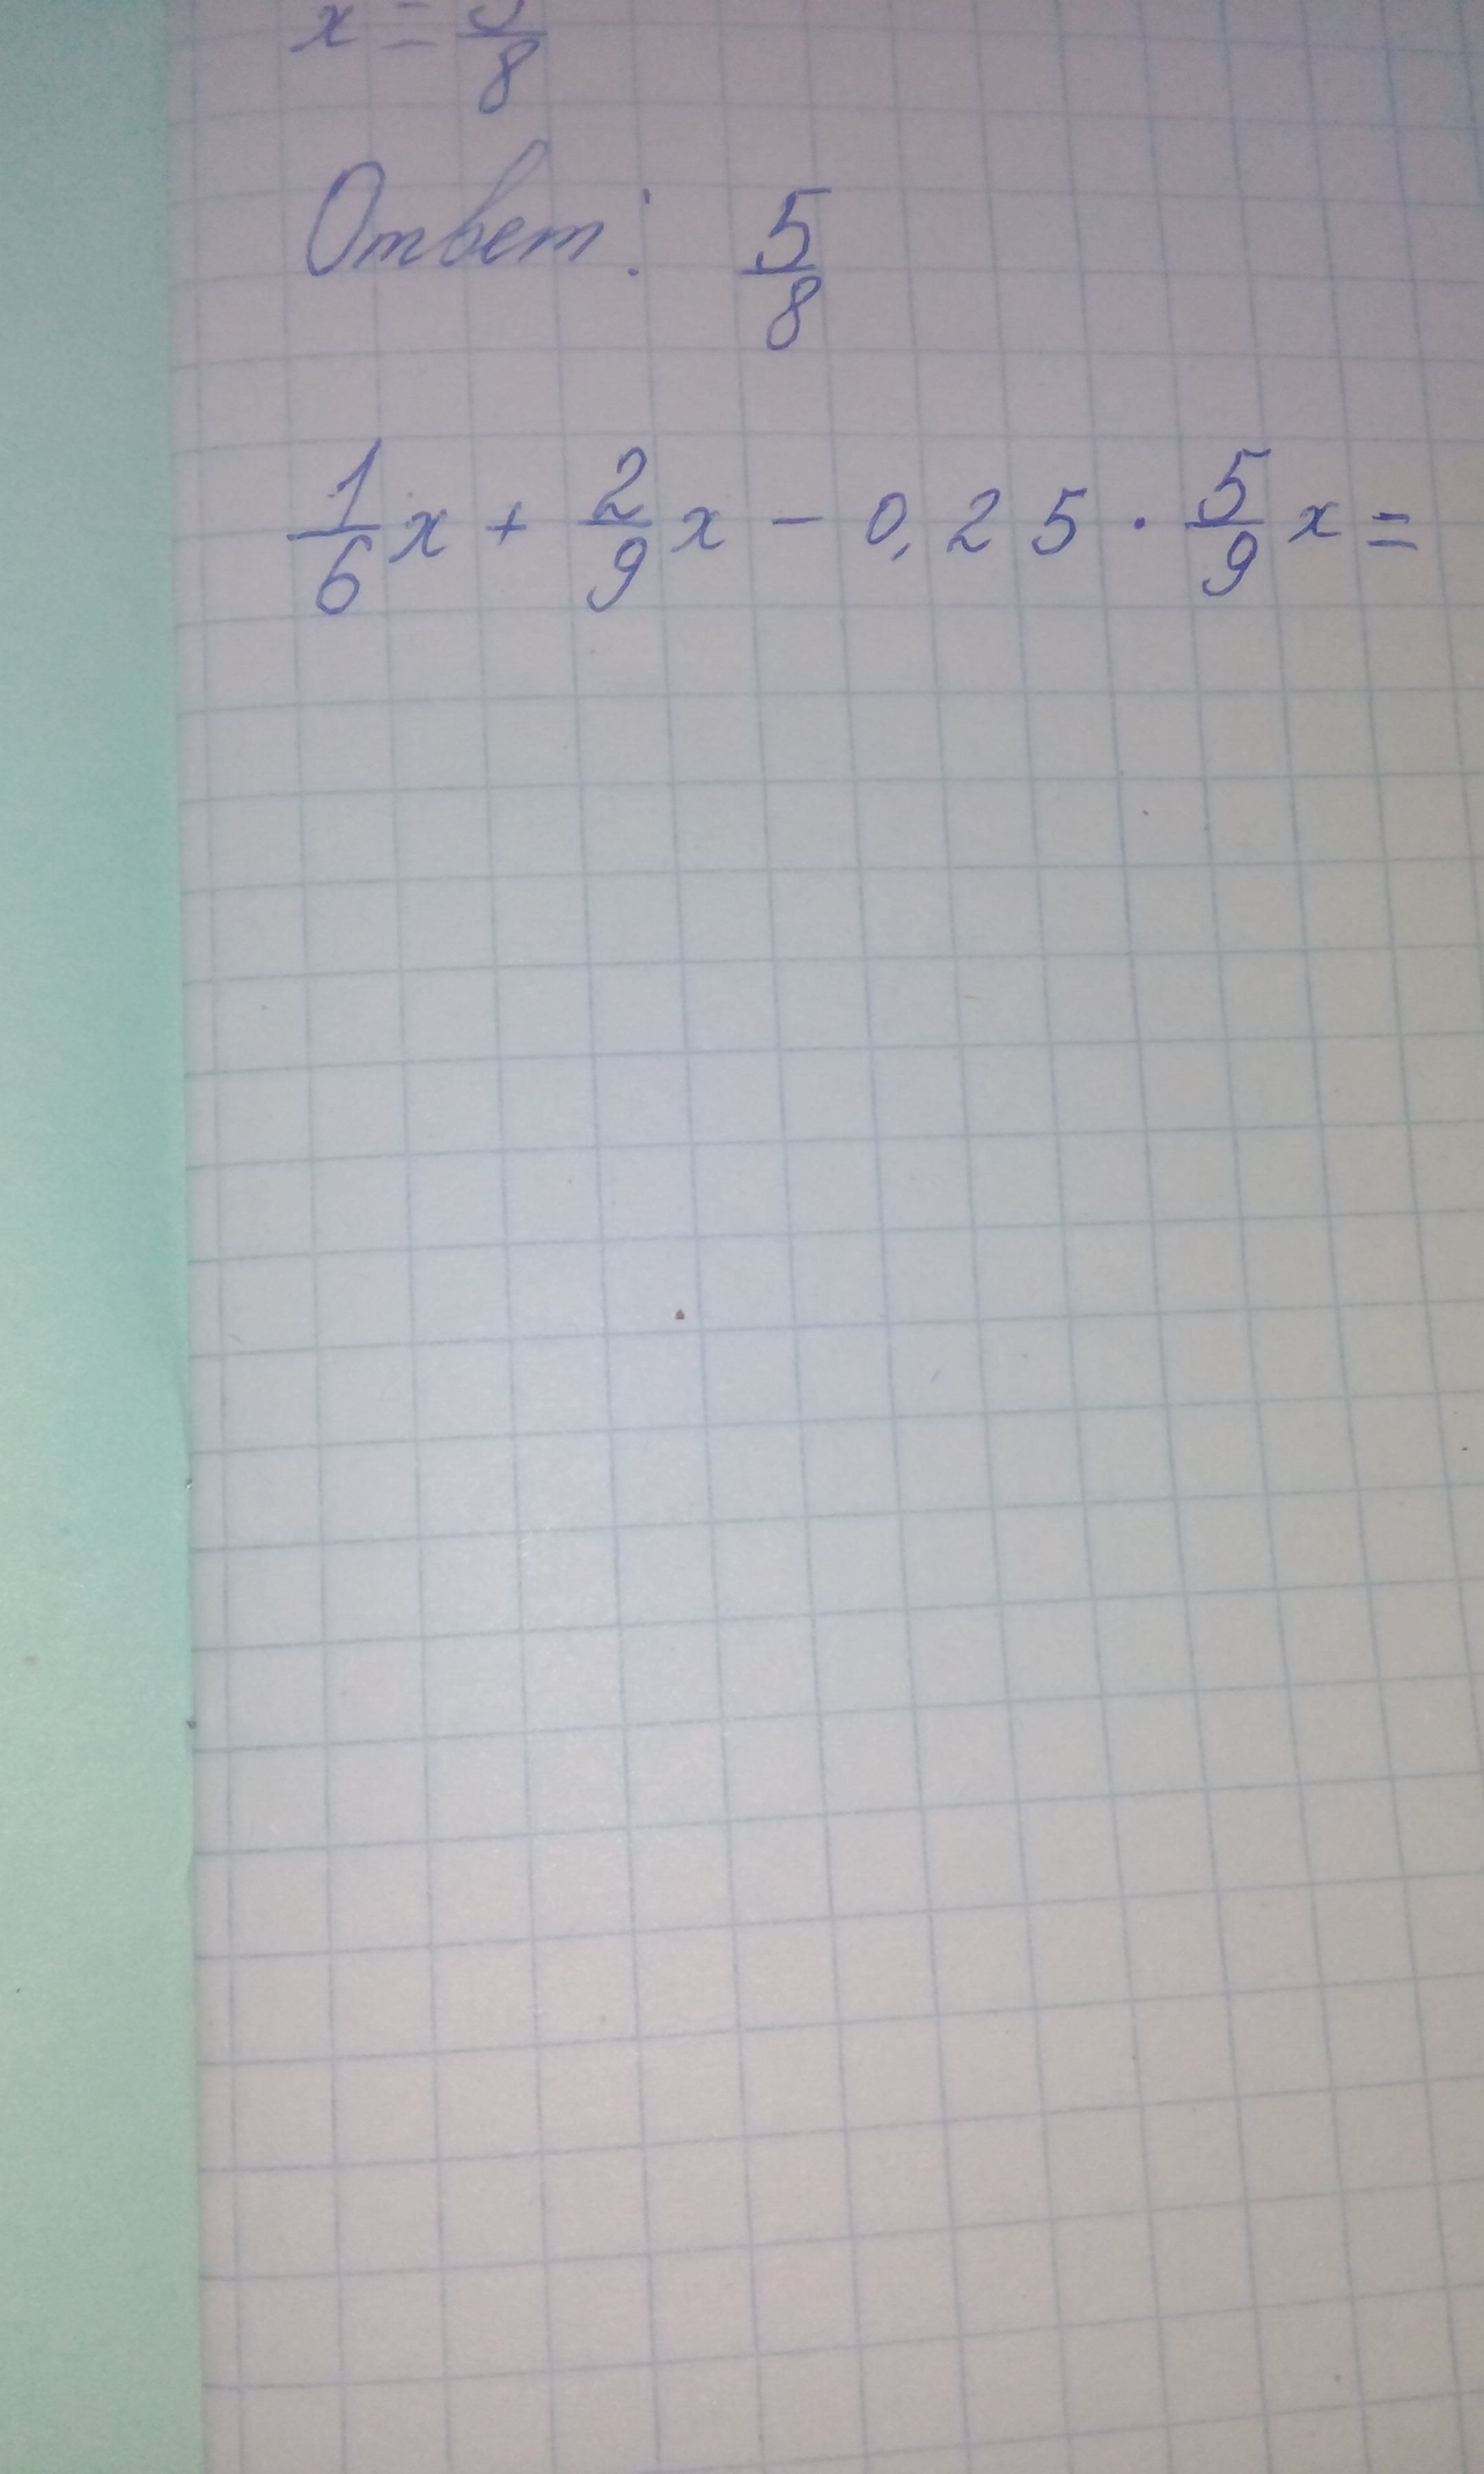 x = 5/8
Ответ: 5/8
1/6 x + 2/9 x - 0,25 · 5/9 x =